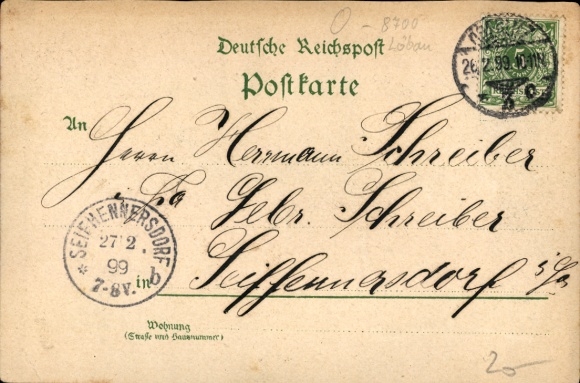 O-8700
Löbau
Deutsche Reichspost
Postkarte
26.2.99.10-11N.
5
An
Herrn Herrmann Schreiber
i. Fa. Gebr. Schreiber
SEIFHENNERSDORF
27 2
99
7-8V.
b
in Seifhennersdorf i/Sa
Wohnung
(Straße und Hausnummer)
20